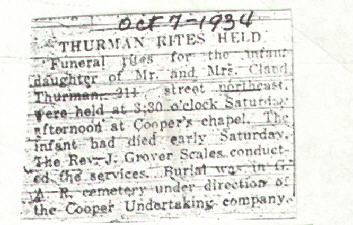 Oct 7-1934
THURMAN RITES HELD
Funeral rites for the infant
daughter of Mr. and Mrs. Claud
Thurman, street northeast,
were held at 3:30 o'clock Saturday
afternoon at Cooper's chapel. The
infant had died early Saturday.
The Rev. J. Grover Scales conduct-
ed the services. Burial was in G.
A. R. cemetery under direction of
the Cooper Undertaking company.